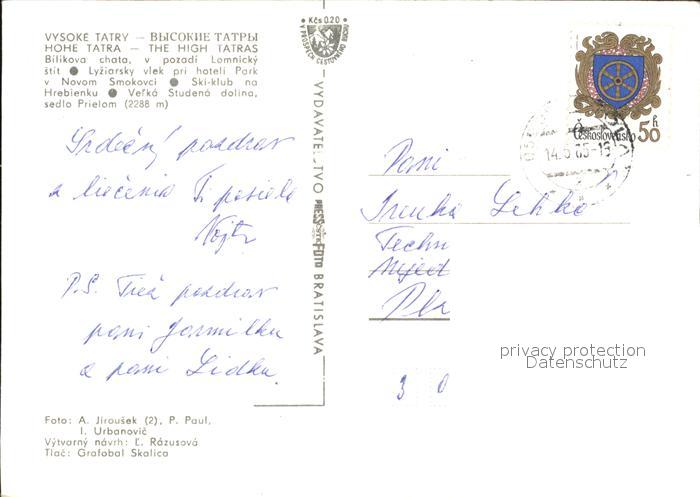 VYSOKÉ TATRY — ВЫСОКИЕ ТАТРЫ
HOHE TATRA — THE HIGH TATRAS
Bílikova chata, v pozadí Lomnický
štít ● Lyžiarsky vlek pri hoteli Park
v Novom Smokovci ● Ski-klub na
Hrebienku ● Veľká Studená dolina,
sedlo Prielom (2288 m)
Kčs 0.20
V PROSPECH CESTOVNÉHO RUCHU
Československo 50 h
14.5
Srdečný pozdrav
z liečenia Ti posiela
Vojto
P.S. Tiež pozdrav
pani Jarmilku
a pani Lidku.
VYDAVATEĽSTVO PRESSFOTO BRATISLAVA
Pani
Irenka Lehko
Techn
Pla
3 0
privacy protection
Datenschutz
Foto: A. Jiroušek (2), P. Paul,
I. Urbanovič
Výtvarný návrh: Ľ. Rázusová
Tlač: Grafobal Skalica